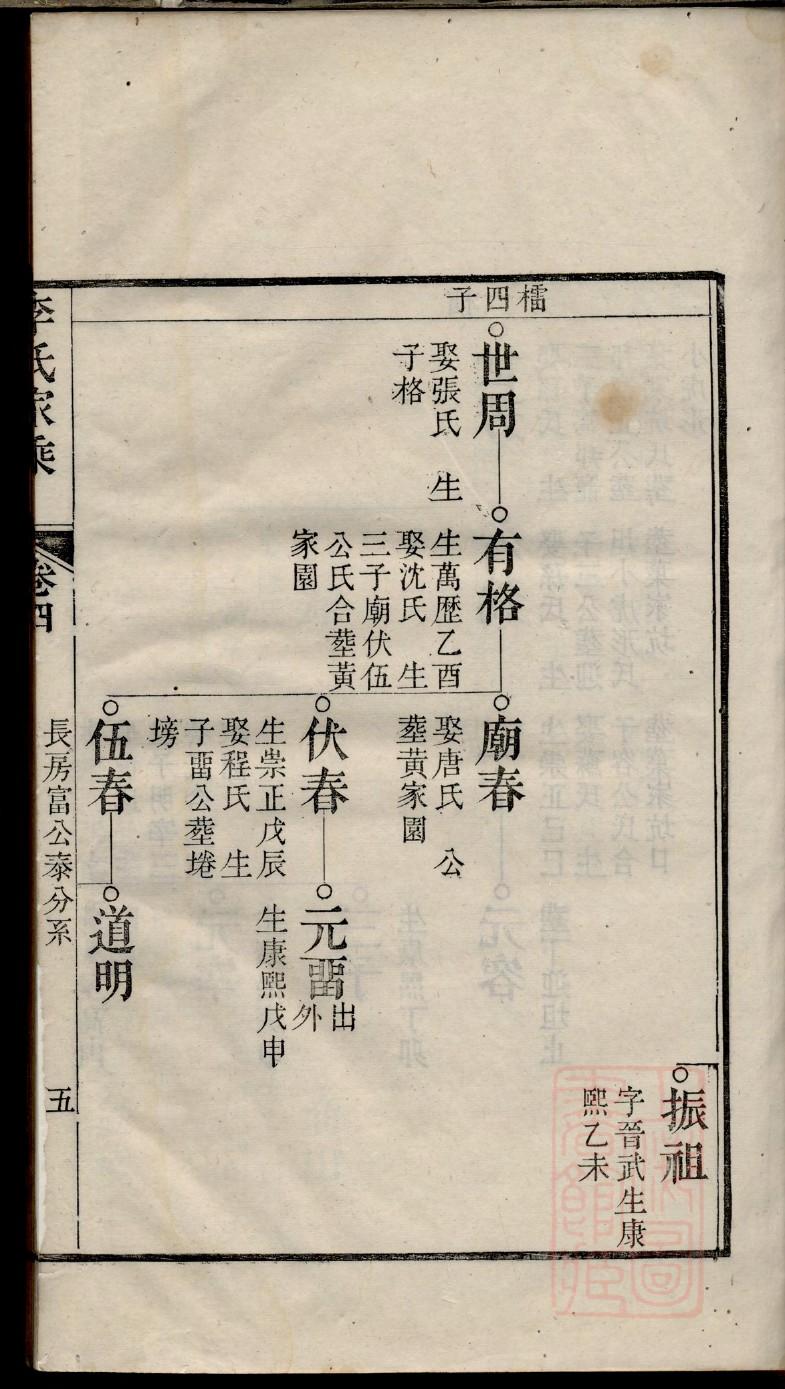 檑四子
振祖
字晉武生康
熙乙未
世周
娶張氏　生
子格
有格
生萬歷乙酉
娶沈氏　生
三子廟伏伍
公氏合塟黃
家園
廟春
娶唐氏　公
塟黃家園
伏春
生崇正戊辰
娶程氏　生
子畱公塟埢
塝
元畱出外
生康熙戊申
伍春
道明
李氏家乘
卷四
長房富公泰分系
五